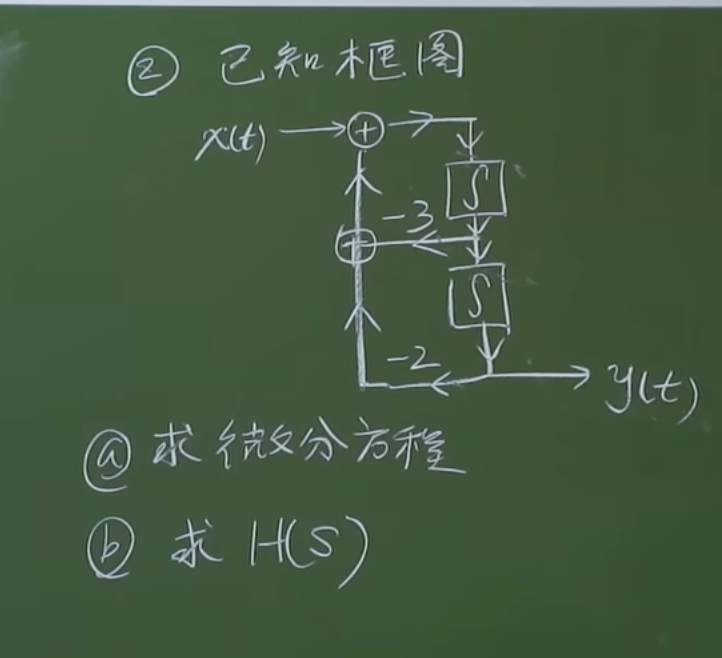 ② 已知框图
x(t)
∫
-3
∫
-2
y(t)
ⓐ 求微分方程
ⓑ 求 H(S)